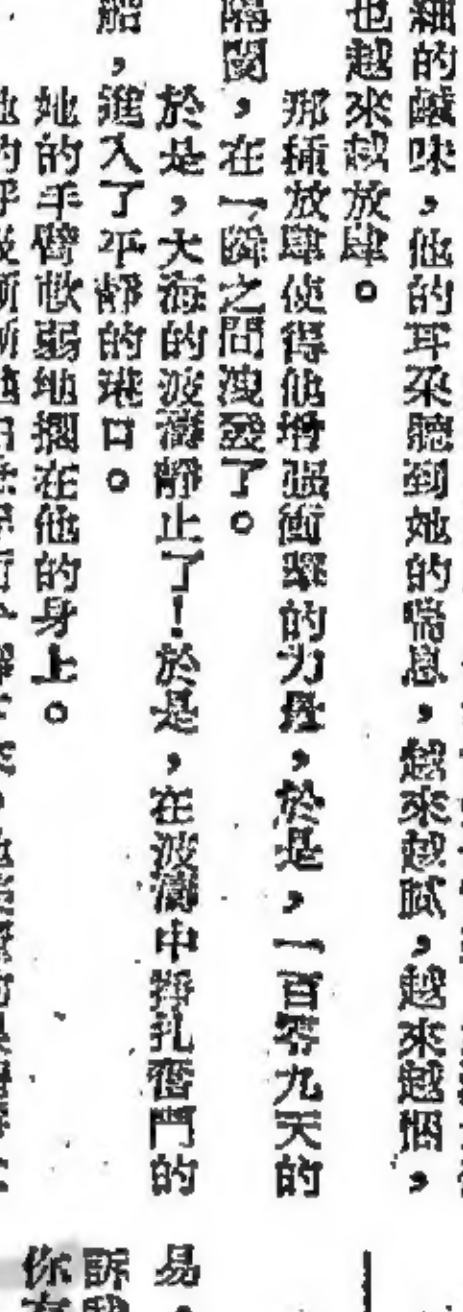 細的鹹味，他的耳朵聽到她的喘息，越來越膩，越來越悃，
也越來越放肆。
那種放肆使得他增强衝擊的力量，於是，一百零九天的
隔閡，在一瞬之間洩發了。
於是，大海的波濤靜止了！於是，在波濤中掙扎奮鬥的
船，進入了平靜的港口。
她的手臂軟弱地擱在他的身上。
易。
訴
你